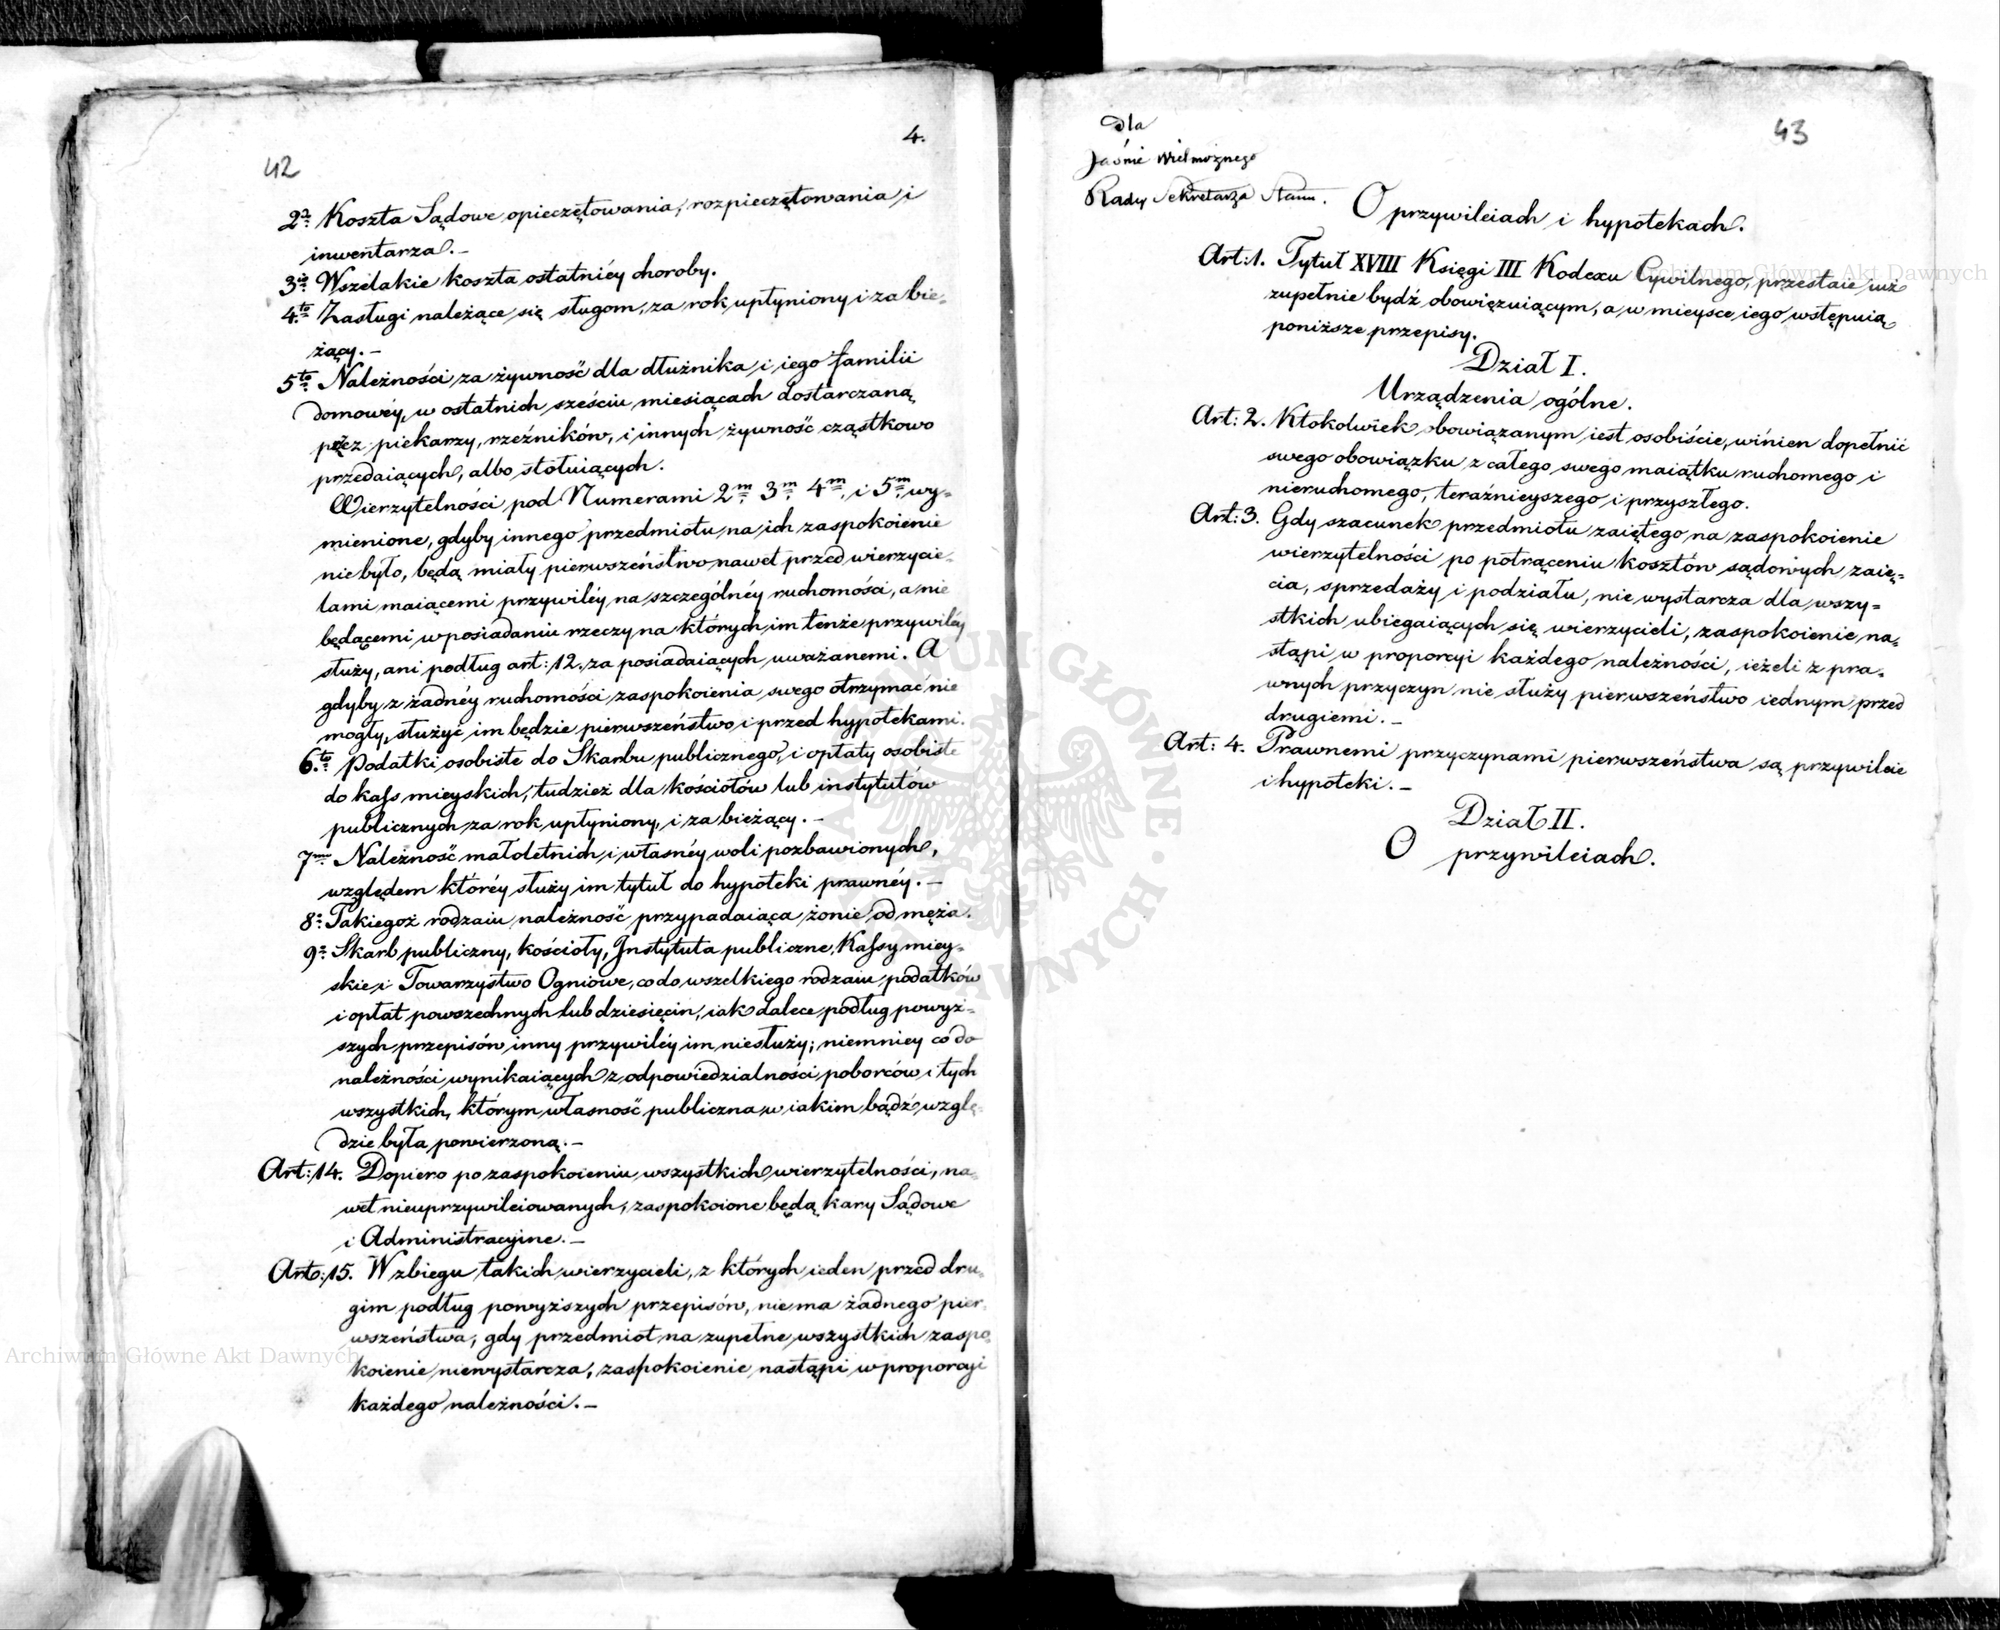 42
4.
2º Koszta Sądowe opieczętowania, rozpieczętowania i
inwentarza. –
3io Wszelakie koszta ostatniéy choroby.
4to Zasługi należące się sługom, za rok upłyniony i za bie=
żący. –
5to Należności za żywność dla dłużnika i iego familii
domowéy, w ostatnich sześciu miesiącach dostarczaną
przez piekarzy, rzeźników, i innych żywność cząstkowo
przedaiących, albo stołuiących.
Wierzytelności pod Numerami 2m 3m 4m, i 5m, wy=
mienione, gdyby innego przedmiotu na ich zaspokoienie
nie było, będą miały pierwszeństwo nawet przed wierzycie=
lami maiącemi przywiléy na szczególnéy ruchomości, a nie
będącemi w posiadaniu rzeczy na których im tenże przywiléy
służy, ani podług art: 12. za posiadaiących uważanemi. A
gdyby z żadnéy ruchomości zaspokoienia swego otrzymać nie
mogły, służyć im będzie pierwszeństwo i przed hypotekami.
6to Podatki osobiste do Skarbu publicznego, i opłaty osobiste
do kass mieyskich, tudzież dla kościołów lub instytutów
publicznych za rok upłyniony, i za bieżący. –
7mo Należność małoletnich i własnéy woli pozbawionych,
względem któréy służy im tytuł do hypoteki prawnéy. –
8º Takiegoż rodzaiu należność przypadaiąca żonie od męża.
9º Skarb publiczny, kościoły, Instytuta publiczne, Kassy miey=
skie i Towarzystwo Ogniowe, co do wszelkiego rodzaiu podatków
i opłat powszechnych lub dziesięcin, iak dalece podług powyż=
szych przepisów inny przywiléy im niesłuży; niemniey co do
należności wynikaiących z odpowiedzialności poborców i tych
wszystkich, którym własność publiczna w iakim bądź wzglę=
dzie była powierzoną. –
Art: 14. Dopiero po zaspokoieniu wszystkich wierzytelności, na=
wet nieuprzywileiowanych, zaspokoione będą kary Sądowe
i Administracyjne. –
Art: 15. W zbiegu takich wierzycieli, z których ieden przed dru=
gim podług powyższych przepisów, nie ma żadnego pier=
wszeństwa, gdy przedmiot na zupełne wszystkich zaspo=
koienie niewystarcza, zaspokoienie nastąpi w proporcyi
każdego należności. –
43
dla
Jaśnie Wielmożnego
Rady Sekretarza Stanu.
O przywileiach i hypotekach.
Art: 1. Tytuł XVIII Księgi III Kodexu Cywilnego, przestaie iuż
zupełnie bydź obowięzuiącym, a w mieysce iego wstępuią
poniższe przepisy.
Dział I.
Urządzenia ogólne.
Art: 2. Ktokolwiek obowiązanym iest osobiście, winien dopełnić
swego obowiązku z całego swego maiątku ruchomego i
nieruchomego, teraźnieyszego i przyszłego.
Art: 3. Gdy szacunek przedmiotu zaiętego na zaspokoienie
wierzytelności po potrąceniu kosztów sądowych zaię=
cia, sprzedaży i podziału, nie wystarcza dla wszy=
stkich ubiegaiących się wierzycieli, zaspokoienie na=
stąpi w proporcyi każdego należności, ieżeli z pra=
wnych przyczyn nie służy pierwszeństwo iednym przed
drugiemi. –
Art: 4. Prawnemi przyczynami pierwszeństwa są przywileie
i hypoteki. –
Dział II.
O przywileiach.
Archiwum Główne Akt Dawnych
Archiwum Główne Akt Dawnych